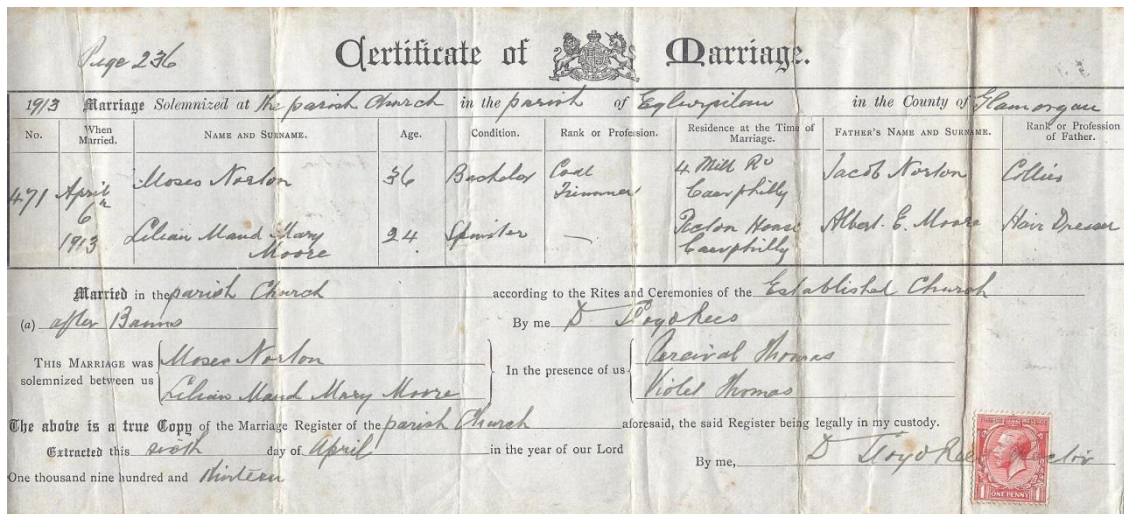 Page 236
Certificate of Marriage.
1913 Marriage Solemnized at the parish Church in the parish of Eglwysilan in the County of Glamorgan
No. When Married. NAME AND SURNAME. Age. Condition. Rank or Profession. Residence at the Time of Marriage. FATHER'S NAME AND SURNAME. Rank or Profession of Father.
471 April 6th 1913 Moses Norton 36 Bachelor Coal Trimmer 4 Mill Rd Caerphilly Jacob Norton Collier
Lilian Maud Mary Moore 24 Spinster — Picton House Caerphilly Albert. E. Moore Hair Dresser
Married in the parish Church according to the Rites and Ceremonies of the Established Church
(a) after Banns By me D Lloyd Rees
THIS MARRIAGE was solemnized between us Moses Norton In the presence of us Percival Thomas
Lilian Maud Mary Moore Violet Thomas
The above is a true Copy of the Marriage Register of the parish Church aforesaid, the said Register being legally in my custody.
Extracted this sixth day of April in the year of our Lord By me, D Lloyd Rees
One thousand nine hundred and thirteen
ONE PENNY